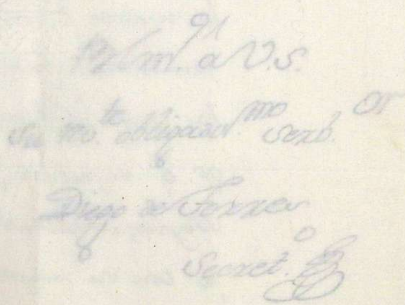 a V.S.
Su m.to obligad.mo Serv.or
Diego de Torres
Secret.o